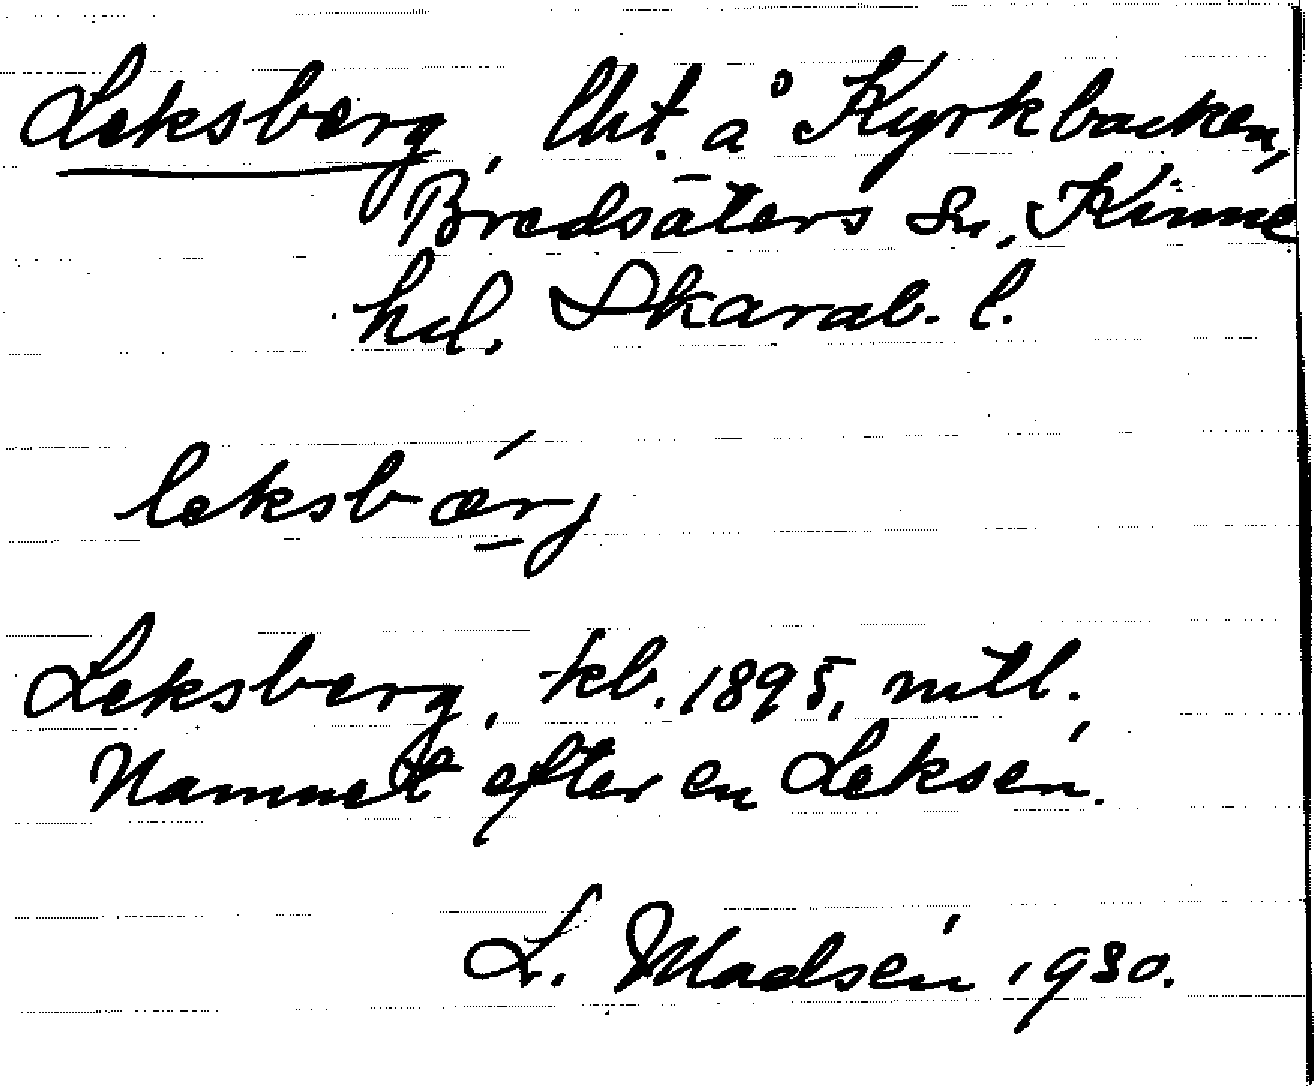 Leksberg, lht. å Kyrkbacken,
Bredsäters sn, Kinne
hd. Skarab. l.
leksbærj
Leksberg, kb. 1895, mtl.
Namnet efter en Leksén.
L. Madsén 1930.